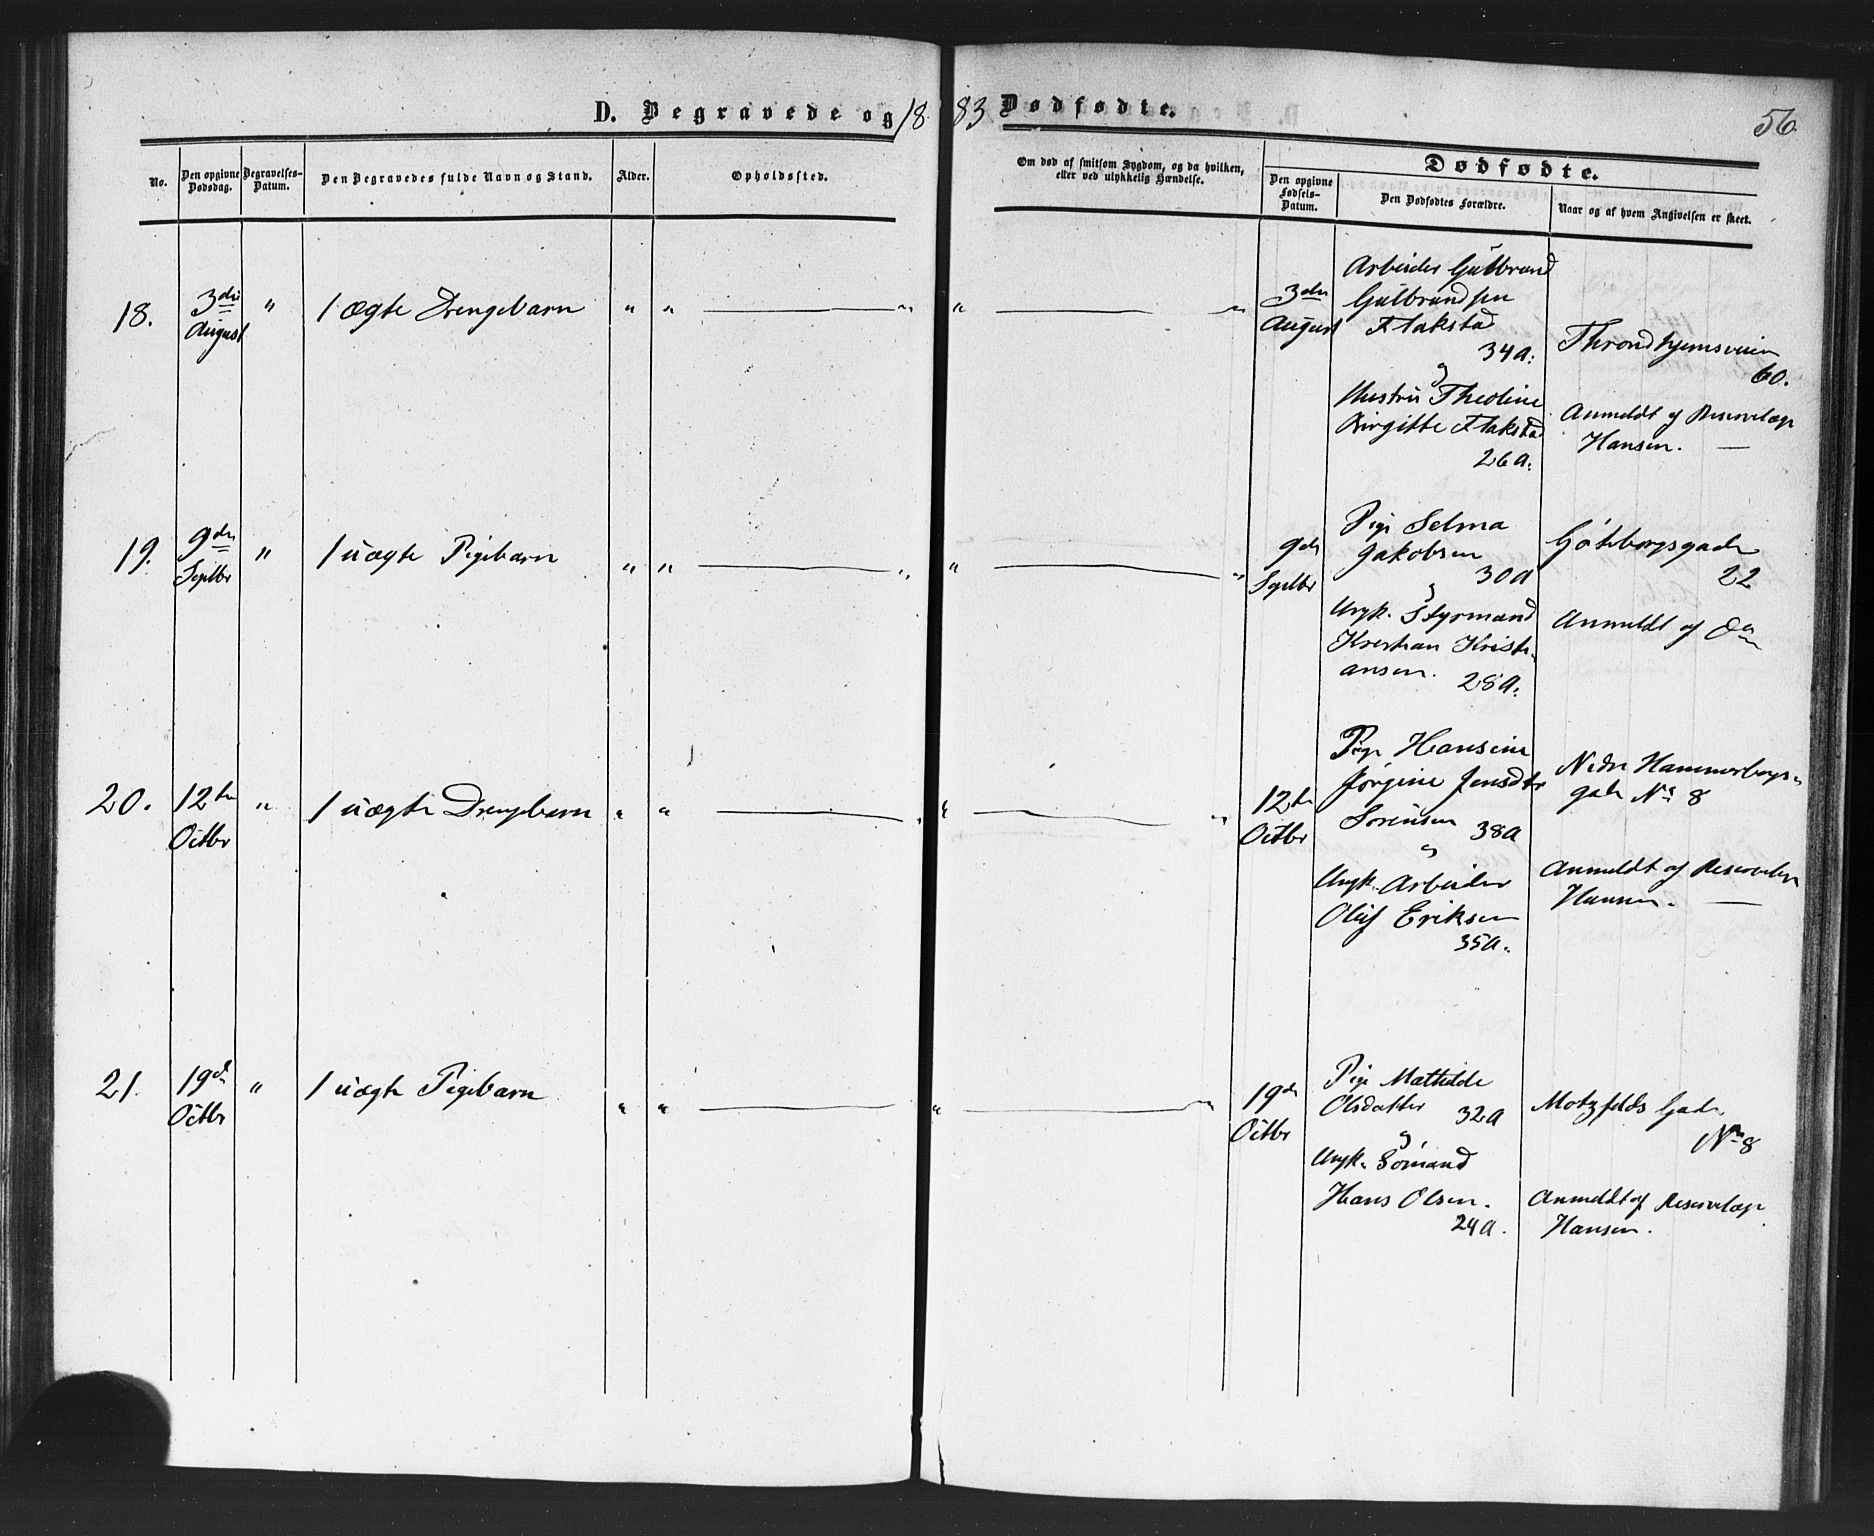 D. Begravede og 1883 Dødfødte.
56
No.
Den opgivne Dødsdag.
Begravelses-Datum.
Den Begravedes fulde Navn og Stand.
Alder.
Opholdssted.
Om død af smitsom Sygdom, og da hvilken, eller ved ulykkelig Hændelse.
Dødfødte.
Den opgivne Fødsels-Datum.
Den Dødfødtes Forældre.
Naar og af hvem Angivelsen er skeet.
18.
3die
August
"
1 ægte Drengebarn
"
"
"
"
"
3die
August
Arbeider Gulbrand
Gulbrandsen
Flakstad
34 a:
og
Hustru Theoline
Birgitte Flakstad
26 a:
Throndhjemsveien
60.
Anmeldt af Reservelæge
Hansen. —
19.
9de
Septbr
"
1 uægte Pigebarn
"
"
"
"
"
9de
Septbr
Pige Selma
Jakobsen
30 a
og
Ungk. Styrmand
Kristian Kristi-
ansen.
28 a:
Göteborgsgade
22
Anmeldt af Do
20.
12te
Octbr
"
1 uægte Drengebarn
"
"
"
"
"
12te
Octbr
Pige Hansine
Jørgine Jensdtr
Sørensen 38 a
og
Ungk. Arbeider
Oluf Eriksen
35 a.
Nedre Hammersborgs-
gade No 8
Anmeldt af Reservelæge
Hansen. —
21.
19de
Octbr
"
1 uægte Pigebarn
"
"
"
"
19de
Octbr
Pige Mathilde
Olsdatter 32 a
og
Ungk. Sømand
Hans Olsen.
24 a.
Motzfeldts Gade
No 8
Anmeldt af Reservelæge
Hansen.